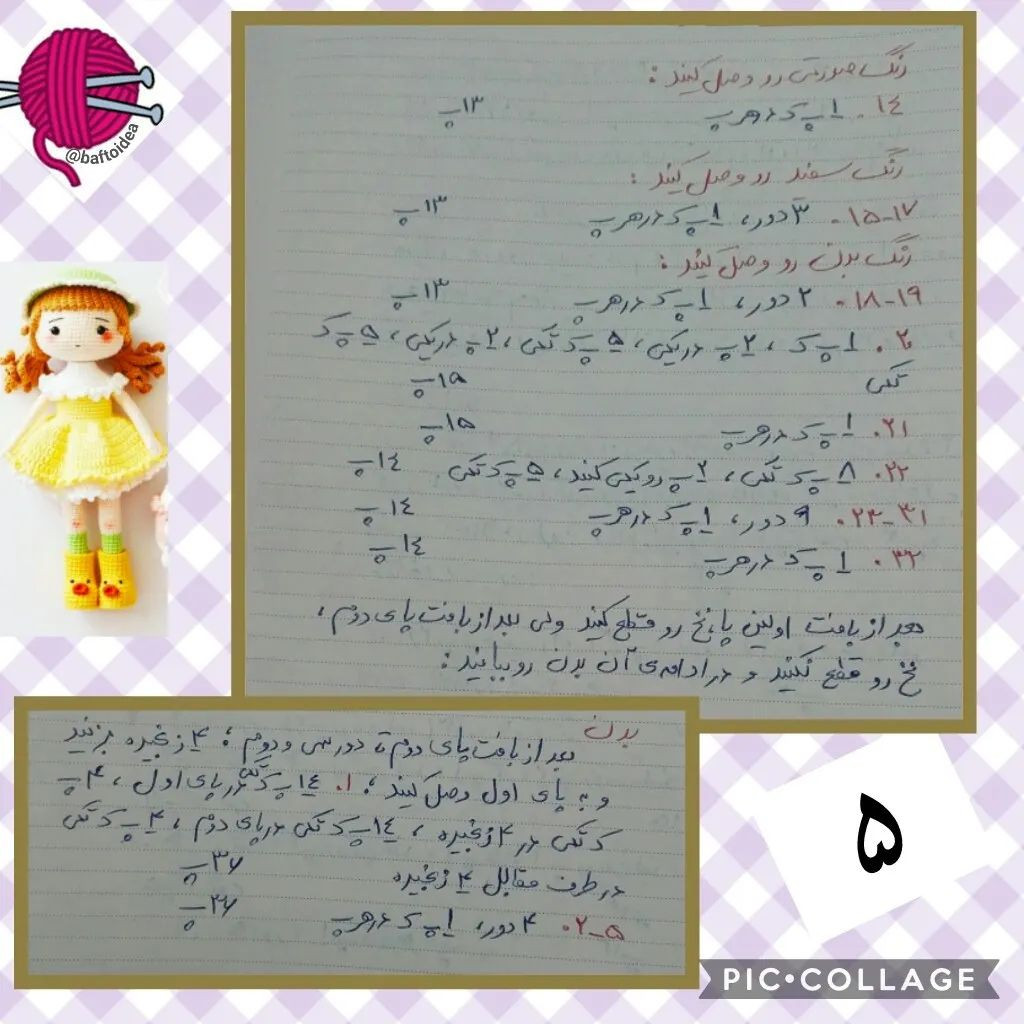 @baftoidea
رنگ صورتی رو وصل کنید :
۱۴. ۱ پ ک در هر پ ۱۳ پ
رنگ سفید رو وصل کنید :
۱۵-۱۷. ۳ دور، ۱ پ ک در هر پ ۱۳ پ
رنگ بدن رو وصل کنید :
۱۸-۱۹. ۲ دور، ۱ پ ک در هر پ ۱۳ پ
۲۰. ۱ پ ک ، ۲ پ در یکی، ۵ پ ک تکی، ۲ پ در یکی، ۵ پ ک
تکی ۱۵ پ
۲۱. ۱ پ ک در هر پ ۱۵ پ
۲۲. ۸ پ ک تکی، ۲ پ رو یکی کنید، ۵ پ ک تکی ۱۴ پ
۲۳-۳۱. ۹ دور، ۱ پ ک در هر پ ۱۴ پ
۳۲. ۱ پ ک در هر پ ۱۴ پ
بعد از بافت اولین پا، نخ رو قطع کنید ولی بعد از بافت پای دوم،
نخ رو قطع نکنید و در ادامه‌ی آن بدن رو ببافید :
بدن
بعد از بافت پای دوم تا دور سی و دوم ؛ ۴ زنجیره بزنید
و به پای اول وصل کنید ؛ ۱. ۱۴ پ ک تکی در پای اول ، ۴ پ
ک تکی در ۴ زنجیره ، ۱۴ پ ک تکی در پای دوم ، ۴ پ ک تکی
در طرف مقابل ۴ زنجیره ۳۶ پ
۲-۵. ۴ دور، ۱ پ ک در هر پ ۳۶ پ
۵
PIC•COLLAGE